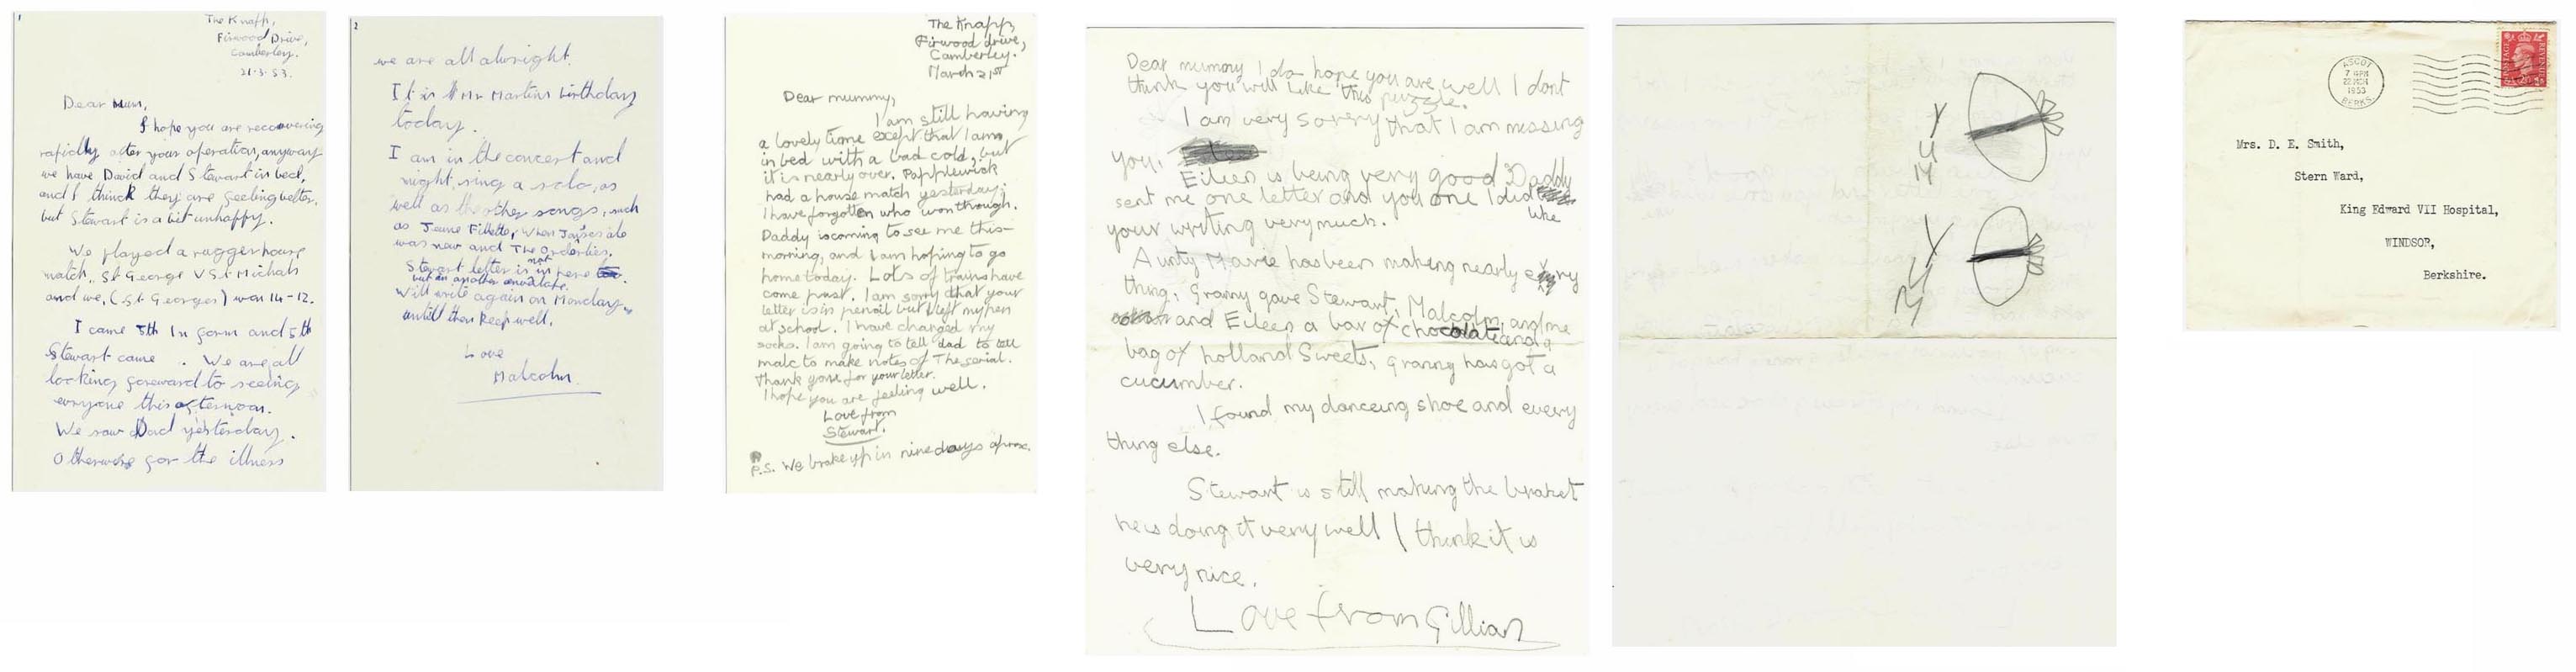 1
The Knapp,
Firwood Drive,
Camberley.
21-3-53.
Dear Mum,
I hope you are recovering
rapidly after your operation, anyway
we have David and Stewart in bed,
and I thinck they are feeling better,
but Stewart is a bit unhappy.
We played a rugger house
match, St George V St Michals
and we, (St Georges) won 14-12.
I came 5th In form and 5th
Stewart came . We are all
looking foreward to seeing
everyone this afternoon.
We saw Dad yesterday.
Otherwise for the illness
2
we are all alwright.
It is Mr Martins birthday
today.
I am in the concert and
might, sing a solo, as
well as the other songs, such
as Jeune Fillette, When
was new and The Orderlies.
Stewart letter is not in here
but in another envelope.
Will write again on Monday,
untill then keep well.
Love
Malcolm.
The Knapp,
Firwood drive,
Camberley.
March 21st
Dear mummy,
I am still having
a lovely time except that I am
in bed with a bad cold, but
it is nearly over. Papplewick
had a house match yesterday;
I have forgotten who won though.
Daddy is coming to see me this-
morning, and I am hoping to go
home today. Lots of trains have
come past. I am sorry that your
letter is in pencil but I left my pen
at school. I have changed my
socks. I am going to tell dad to tell
malc to make notes of The serial.
Thank you for your letter.
I hope you are feeling well.
Love from
Stewart.
P.S. We brake up in nine days aprox.
Dear mummy I do hope you are well I dont
think you will like this puzzle.
I am very sorry that I am missing
you.
Eileen is being very good Daddy
sent me one letter and you one I did
like
your writing very much.
Aunty Marie has been making nearly every
thing, Granny gave Stewart, Malcolm, and me
and Eileen a bar of chocolate and a
bag of holland Sweets, Granny has got a
cucumber.
I found my danceing shoe and every
thing else.
Stewart is still making the basket
he is doing it very well I think it is
very nice.
Love from Gillian
ASCOT
7 15 PM
22 MCH
1953
BERKS.
POSTAGE
REVENUE
Mrs. D. E. Smith,
Stern Ward,
King Edward VII Hospital,
WINDSOR,
Berkshire.